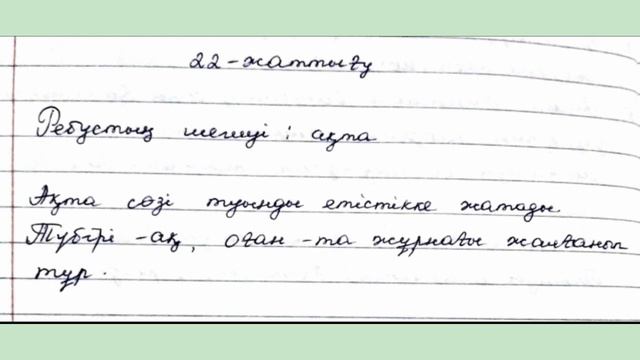 22-жаттығу
Ребустың шешуі: ақта
Ақта сөзі туынды етістікке жатады.
Түбірі -ақ, оған -та жұрнағы жалғанып
тұр.